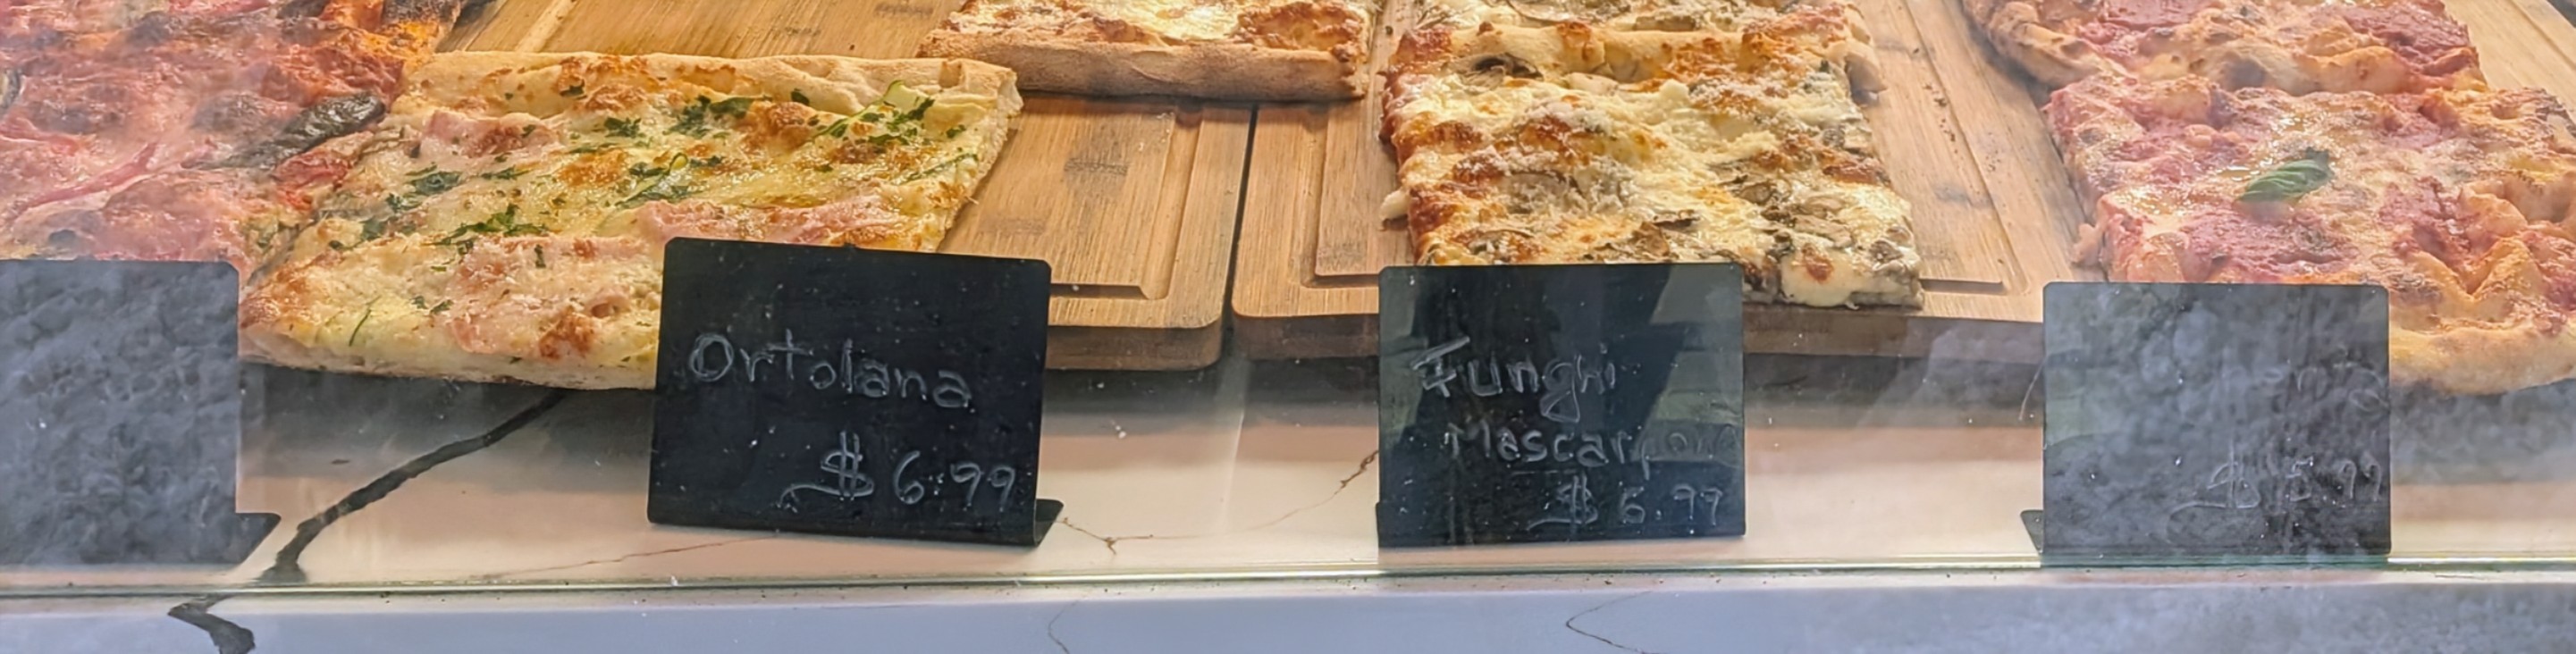 Ortolana
$6.99
Funghi
Mascarpone
$6.99
$ 5.99